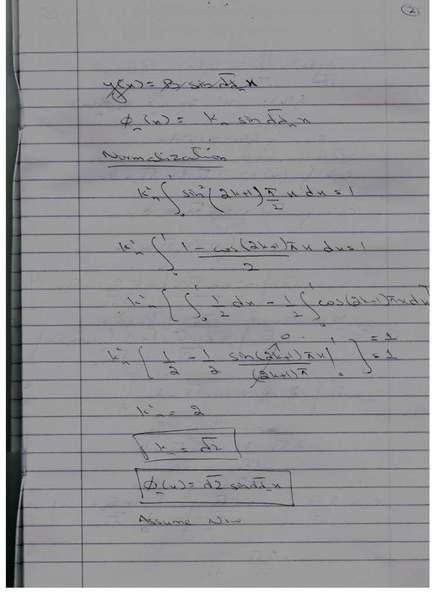 ②
y(x) = B sin √λₙ x
ϕₙ(x) = kₙ sin √λₙ x
Normalization
kₙ² ∫₀¹ sin² (2n+1) π/2 x dx = 1
kₙ² ∫₀¹ (1 - cos(2n+1)πx)/2 dx = 1
kₙ² [ ∫₀¹ 1/2 dx - 1/2 ∫₀¹ cos(2n+1)πx dx ]
kₙ² [ 1/2 - 1/2 sin(2n+1)πx / (2n+1)π |₀¹ ] = 1
0
= 1
kₙ² = 2
kₙ = √2
ϕₙ(x) = √2 sin √λₙ x
Assume Now